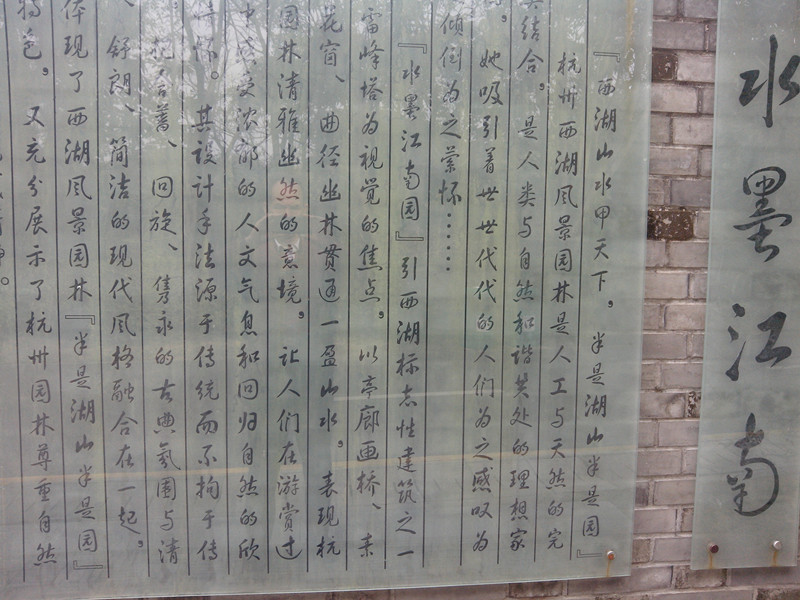 水墨江南
『西湖山水甲天下，半是湖山半是园』
杭州西湖风景园林是人工与天然的完
美结合。是人类与自然和谐共处的理想家
她吸引着世世代代的人们为之感叹为
倾倒为之萦怀……
『水墨江南园』引西湖标志性建筑之一
雷峰塔为视觉的焦点。以亭廊画桥、素
花窗、曲径幽林贯通一盈山水，表现杭
园林清雅幽然的意境。让人们在游赏过
中感受浓郁的人文气息和回归自然的欣
怀。其设计手法源于传统而不拘于传
把含蓄、回旋、隽永的古典氛围与清
舒朗、简洁的现代风格融合在一起，
体现了西湖风景园林『半是湖山半是园』
特色。又充分展示了杭州园林尊重自然